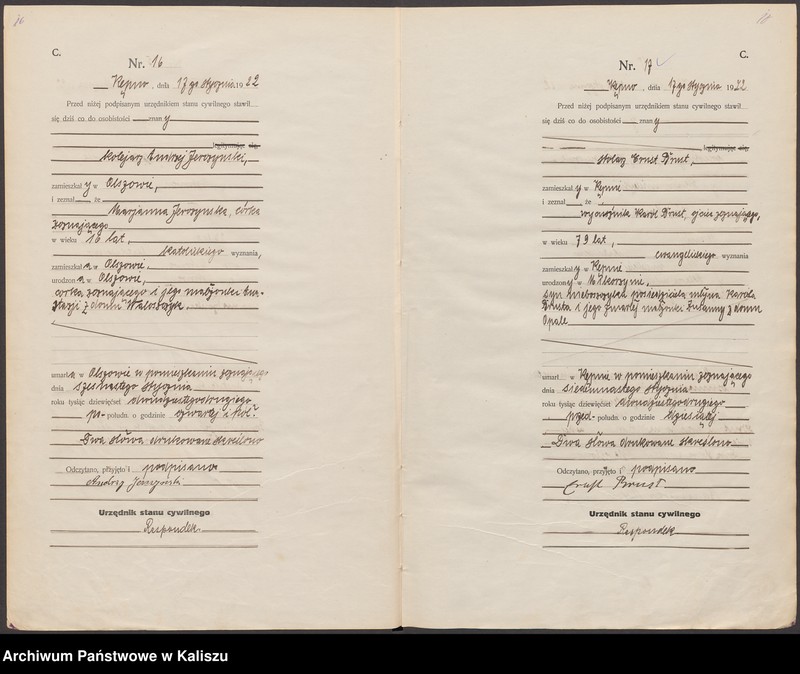 16
C.
Nr. 16
Kępno, dnia 17go stycznia 1922
Przed niżej podpisanym urzędnikiem stanu cywilnego stawił
się dziś co do osobistości znany
legitymując się
kolejarz Andrzej Jerczyński,
zamieszkały w Olszowie,
i zeznał że
Marjanna Jerczyńska, córka
zeznającego
w wieku 16 lat,
katolickiego wyznania,
zamieszkała w Olszowie,
urodzona w Olszowie,
córka zeznającego i jego małżonki
z domu
umarła w Olszowie w pomieszkaniu zeznającego
dnia szesnastego stycznia
roku tysiąc dziewięćset dwudziestegodrugiego
po- połudn. o godzinie czwartej i pół
Dwa słowa drukowane skreślono
Odczytano, przyjęto i podpisano
Andrzej Jerczyński
Urzędnik stanu cywilnego
Respondek
C.
Nr. 17
Kępno, dnia 17go stycznia 1922
Przed niżej podpisanym urzędnikiem stanu cywilnego stawił
się dziś co do osobistości znany
legitymując się
stolarz Ernst Drust,
zamieszkały w Kępnie
i zeznał że
wycużnik Karol Drust, ojciec zeznającego,
w wieku 79 lat,
ewangelickiego wyznania
zamieszkały w Kępnie
urodzony w
syn nieboszczyka posiedziciela młyna Karola
Drusta i jego zmarłej małżonki Zuzanny z domu
Opale
umarł w Kępnie w pomieszkaniu zeznającego
dnia siedemnastego stycznia
roku tysiąc dziewięćset dwudziestegodrugiego
przed- połudn. o godzinie
Dwa słowa drukowane skreślono
Odczytano, przyjęto i podpisano
Ernst Drust
Urzędnik stanu cywilnego
Respondek
Archiwum Państwowe w Kaliszu